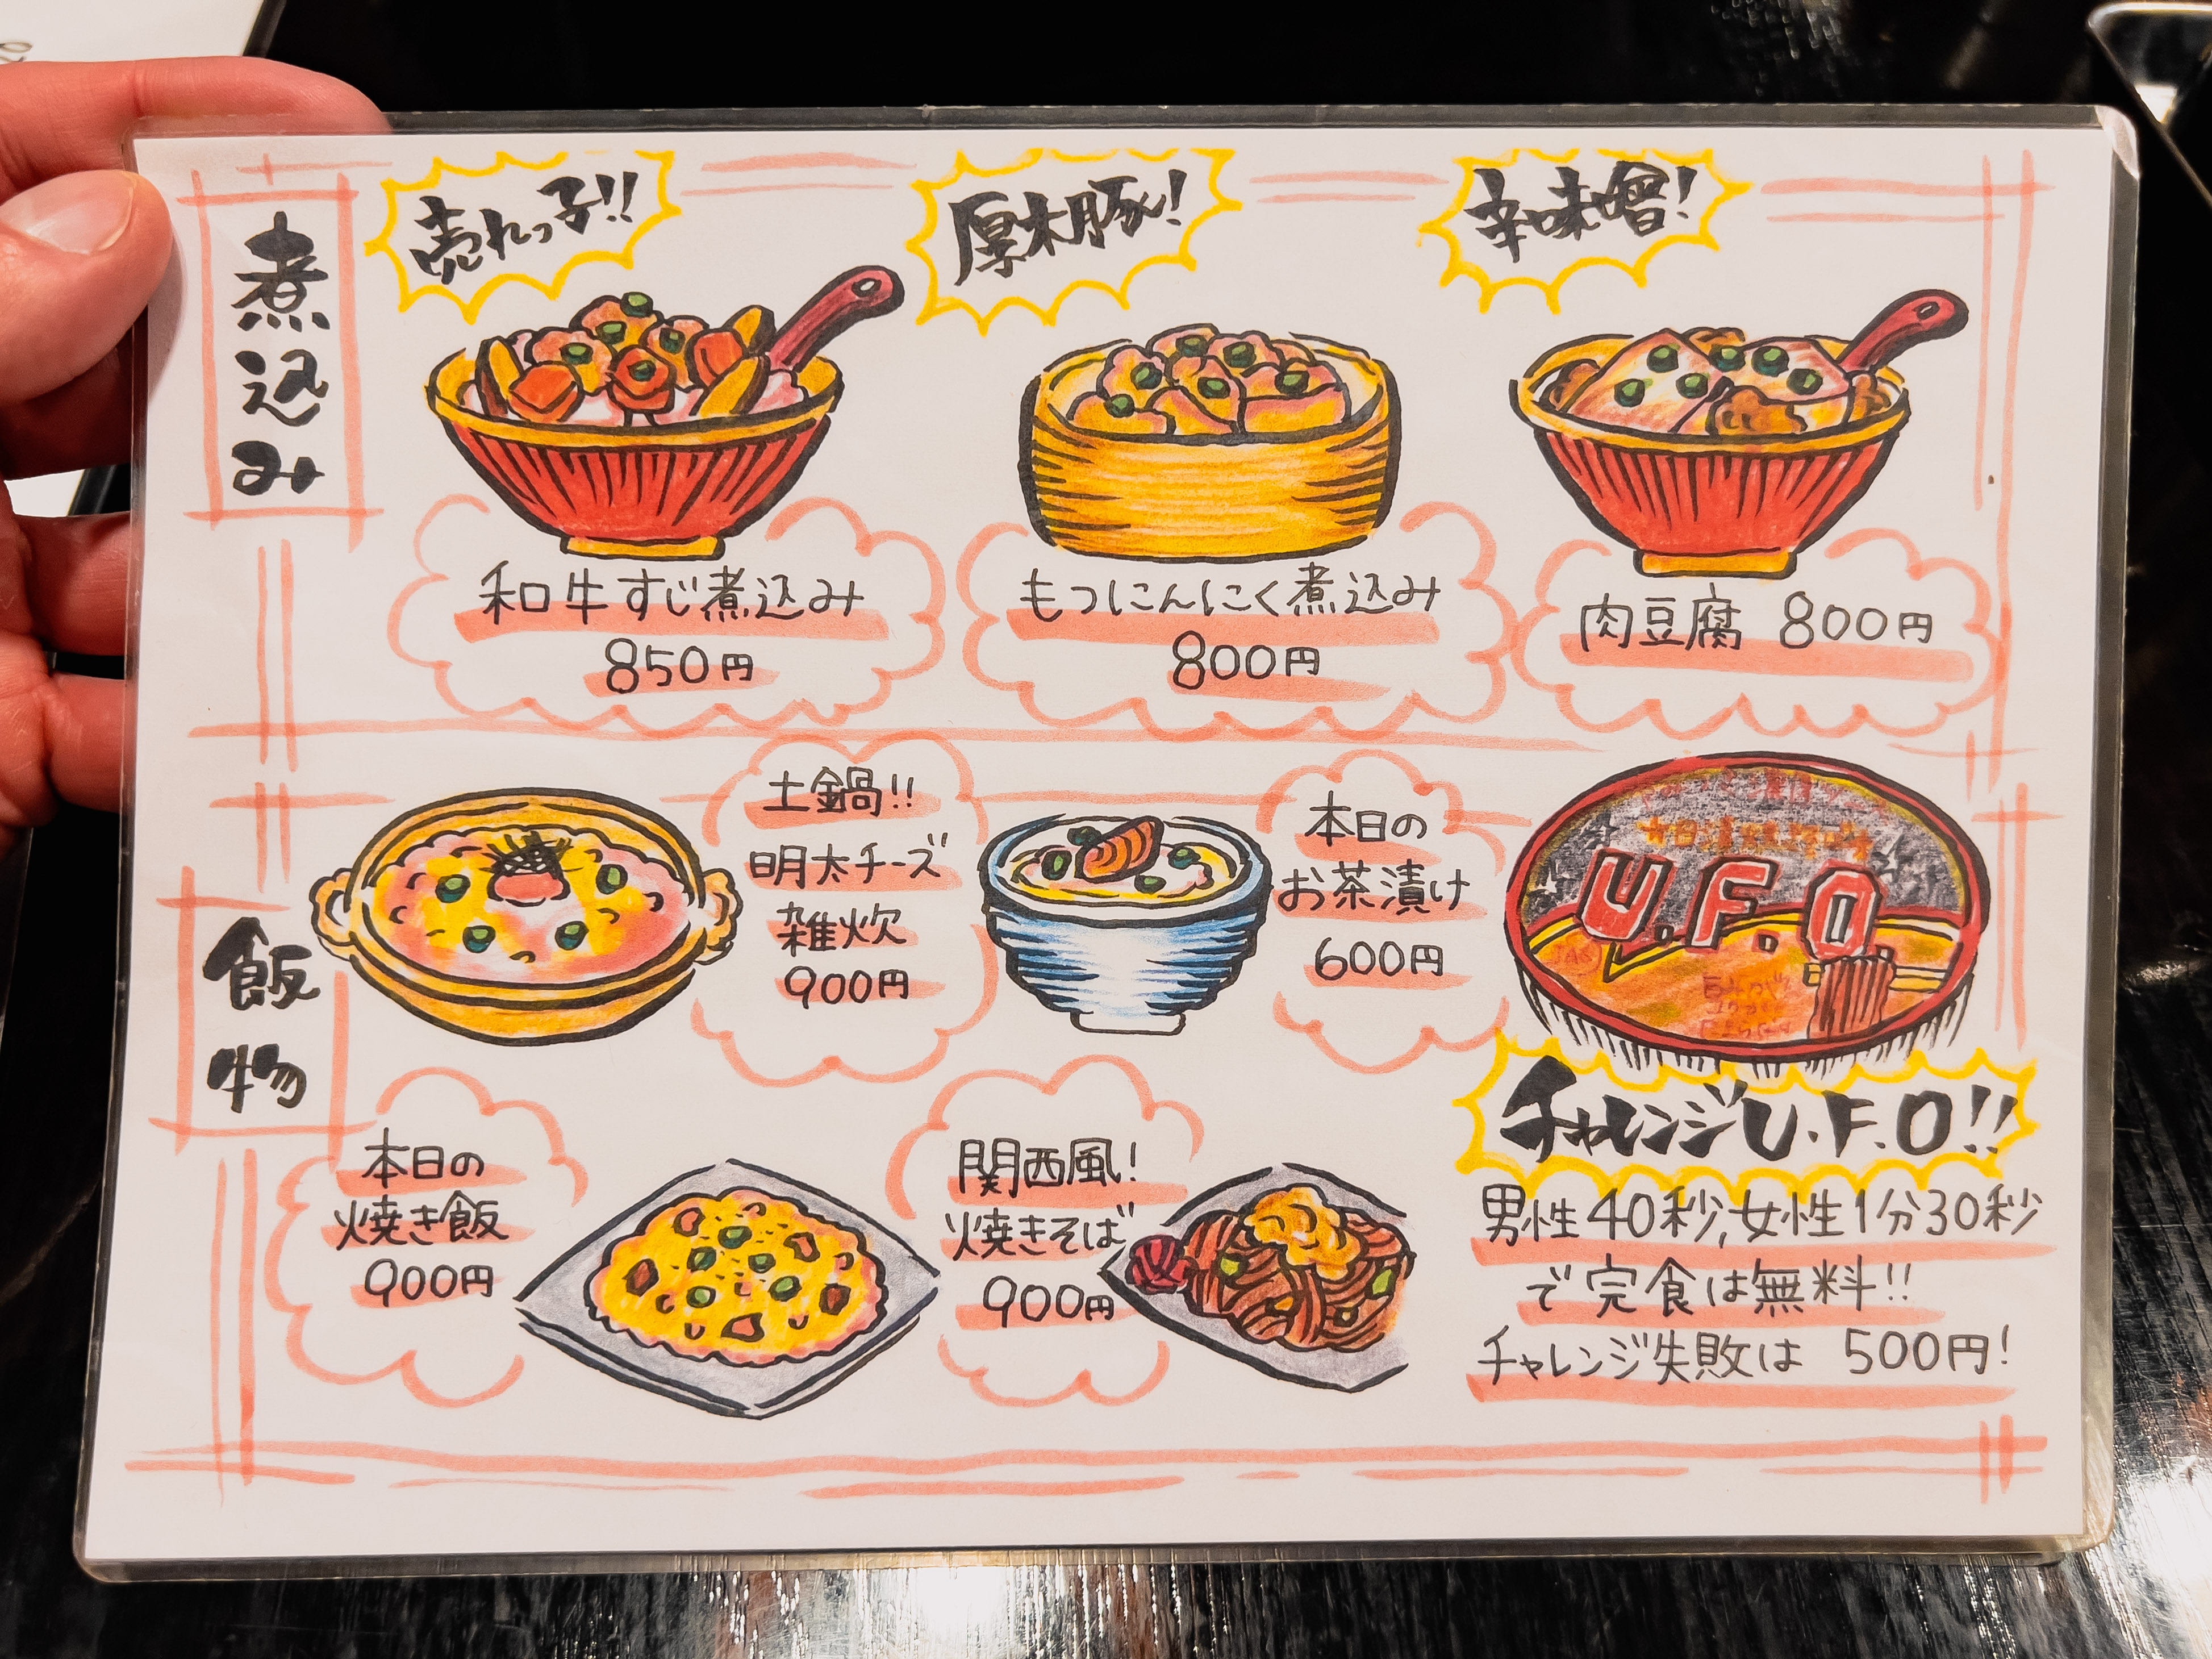 煮込み
売れっ子!!
厚木豚!
辛味噌!
和牛すじ煮込み
850円
もつにんにく煮込み
800円
肉豆腐 800円
飯物
土鍋!!
明太チーズ
雑炊
900円
本日の
お茶漬け
600円
U.F.O
チャレンジU.F.O!!
男性40秒,女性1分30秒
で完食は無料!!
チャレンジ失敗は 500円!
本日の
焼き飯
900円
関西風!
焼きそば
900円